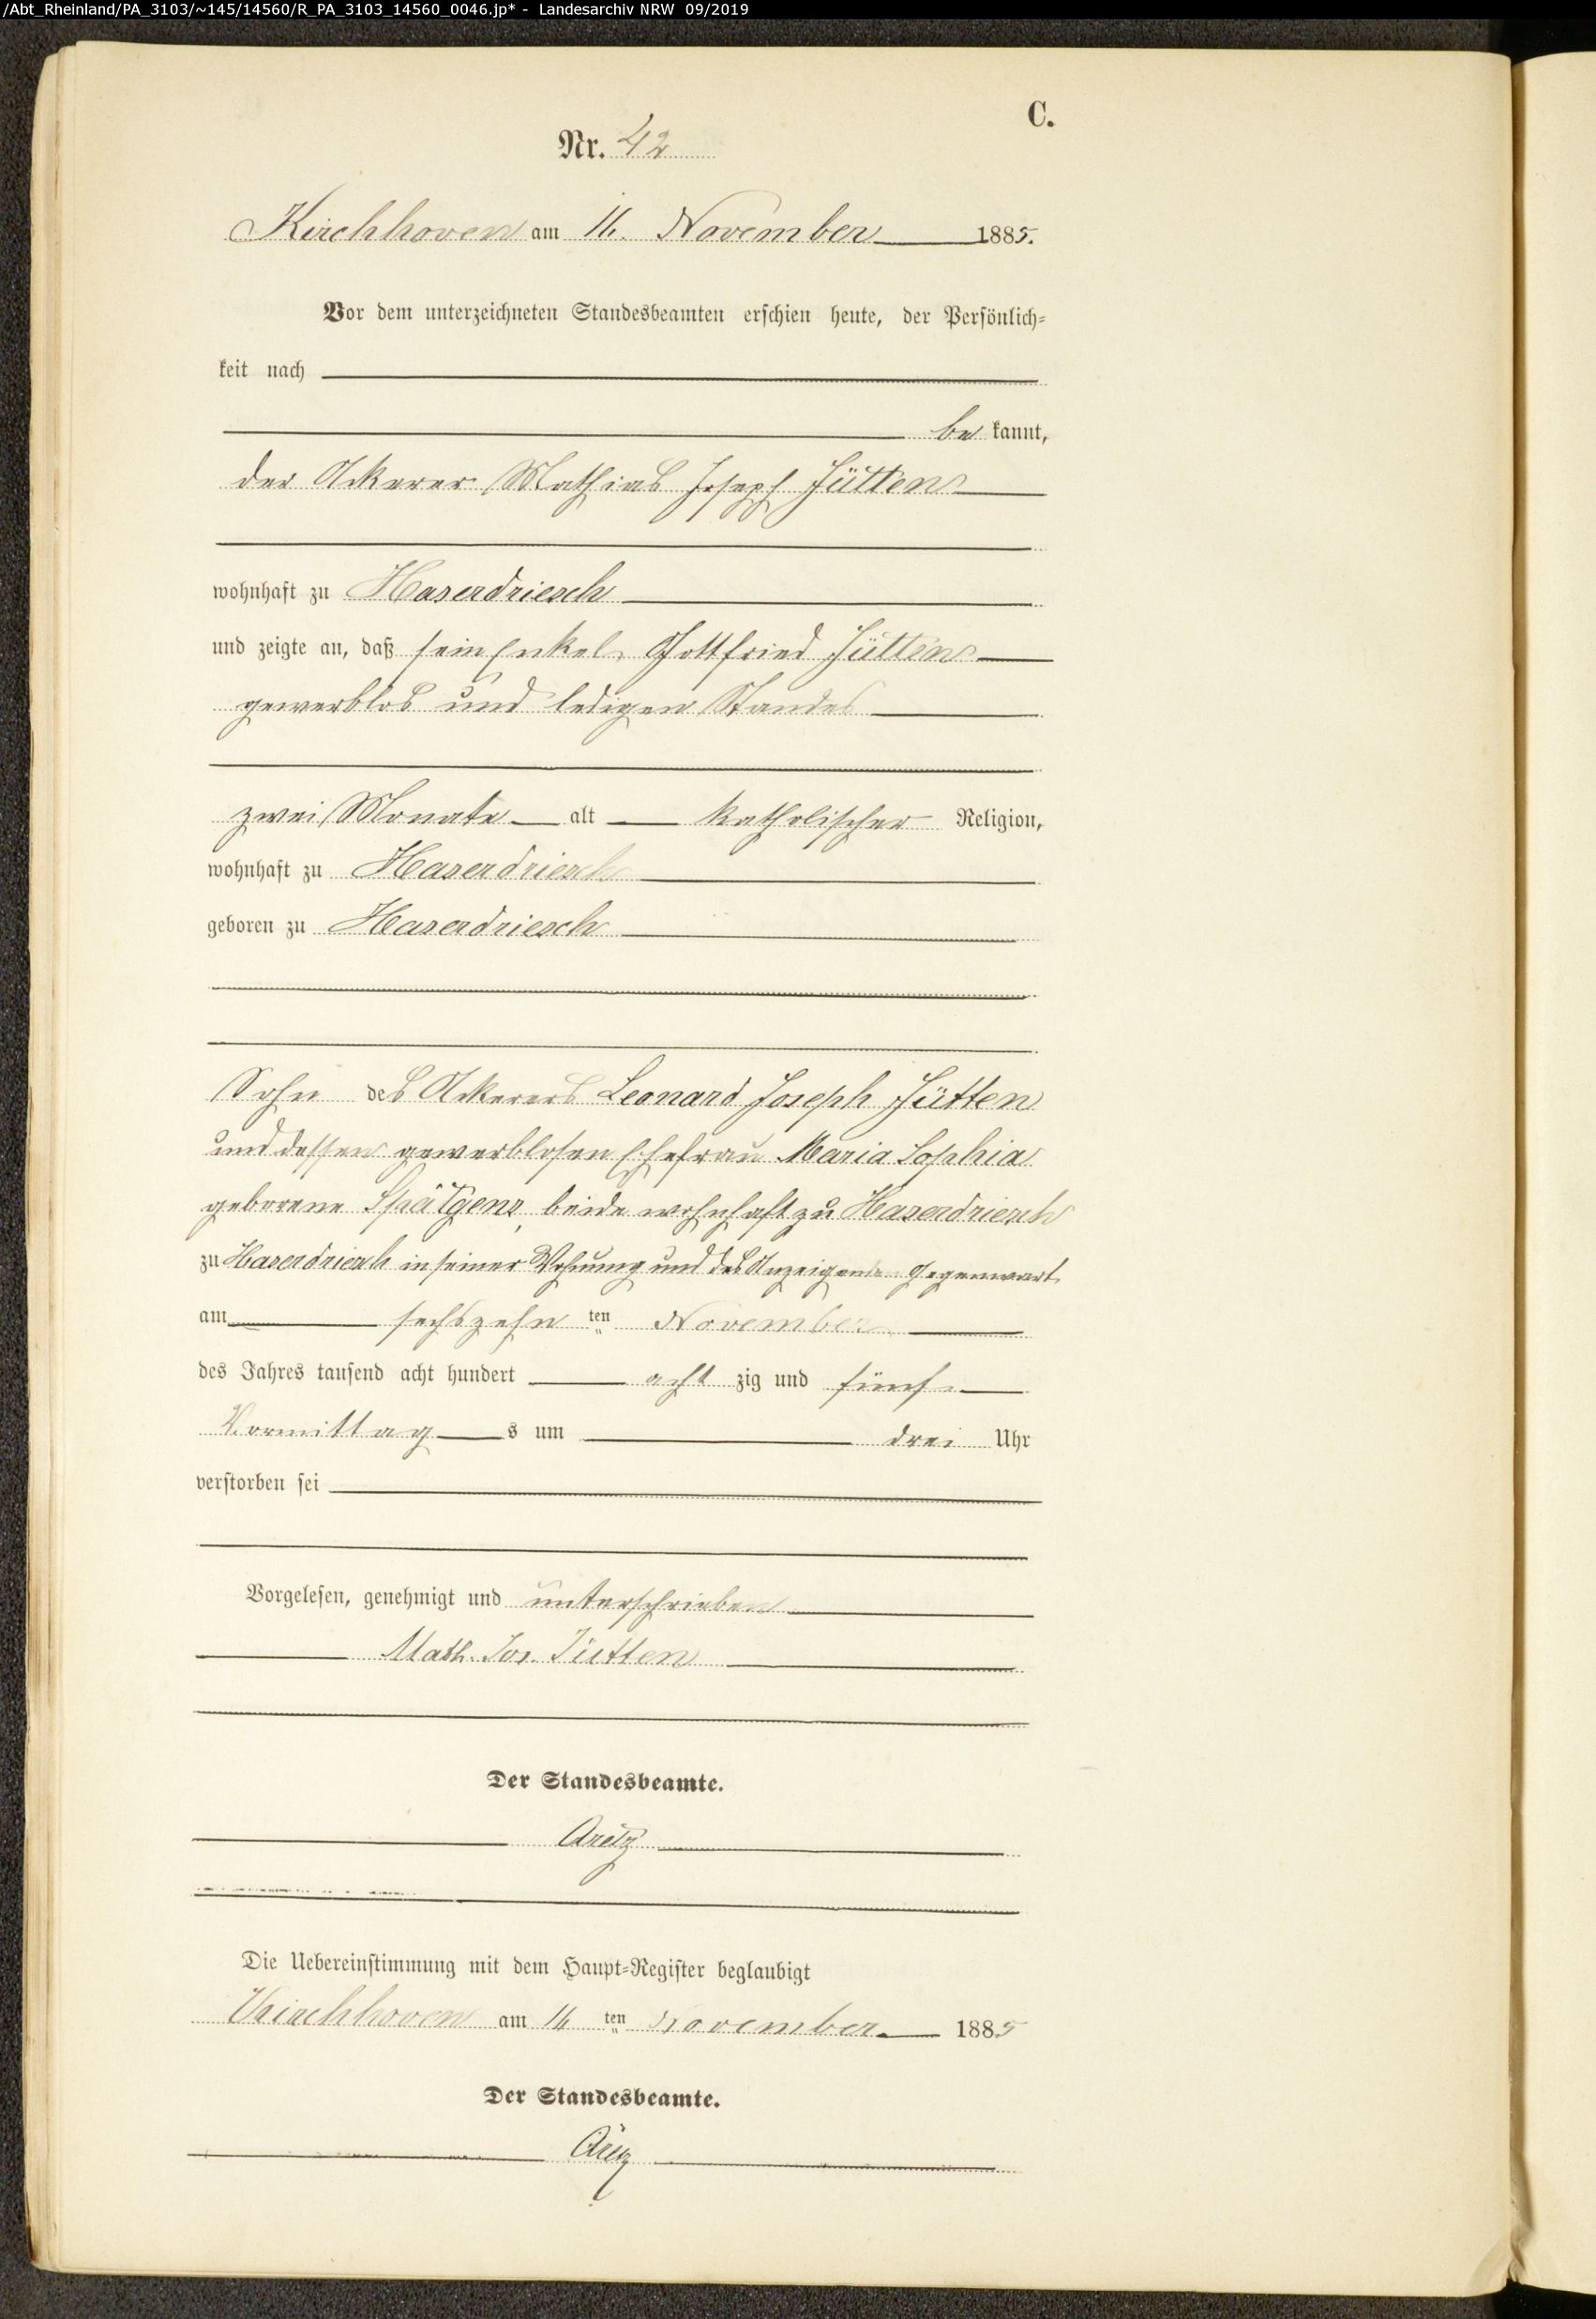 /Abt_Rheinland/PA_3103/~145/14560/R_PA_3103_14560_0046.jp* - Landesarchiv NRW 09/2019
C.
Nr. 42
Kirchhoven am 16. November 1885.
Vor dem unterzeichneten Standesbeamten erschien heute, der Persönlich-
keit nach
be kannt,
der Ackerer Mathias Joseph Jütten
wohnhaft zu Haserdriesch
und zeigte an, daß sein Enkel Gottfried Jütten
gewerblos und ledigen Standes
zwei Monate alt katholischer Religion,
wohnhaft zu Haserdriesch
geboren zu Haserdriesch
Sohn des Ackerers Leonard Joseph Jütten
und dessen gewerblosen Ehefrau Maria Sophia
geborene Spätgens, beide wohnhaft zu Haserdriesch
zu Haserdriesch in seiner Wohnung und des Anzeigenden Gegenwart
am sechszehn ten November
des Jahres tausend acht hundert acht zig und fünf
Vormittag s um drei Uhr
verstorben sei
Vorgelesen, genehmigt und unterschrieben
Math. Jos. Jütten
Der Standesbeamte.
Aretz
Die Uebereinstimmung mit dem Haupt-Register beglaubigt
Kirchhoven am 16 ten November 1885
Der Standesbeamte.
Aretz